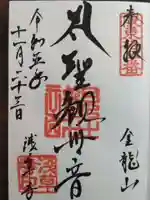 奉拝
金龍山
聖観世音
浅草寺
令和五年
十一月二十三日